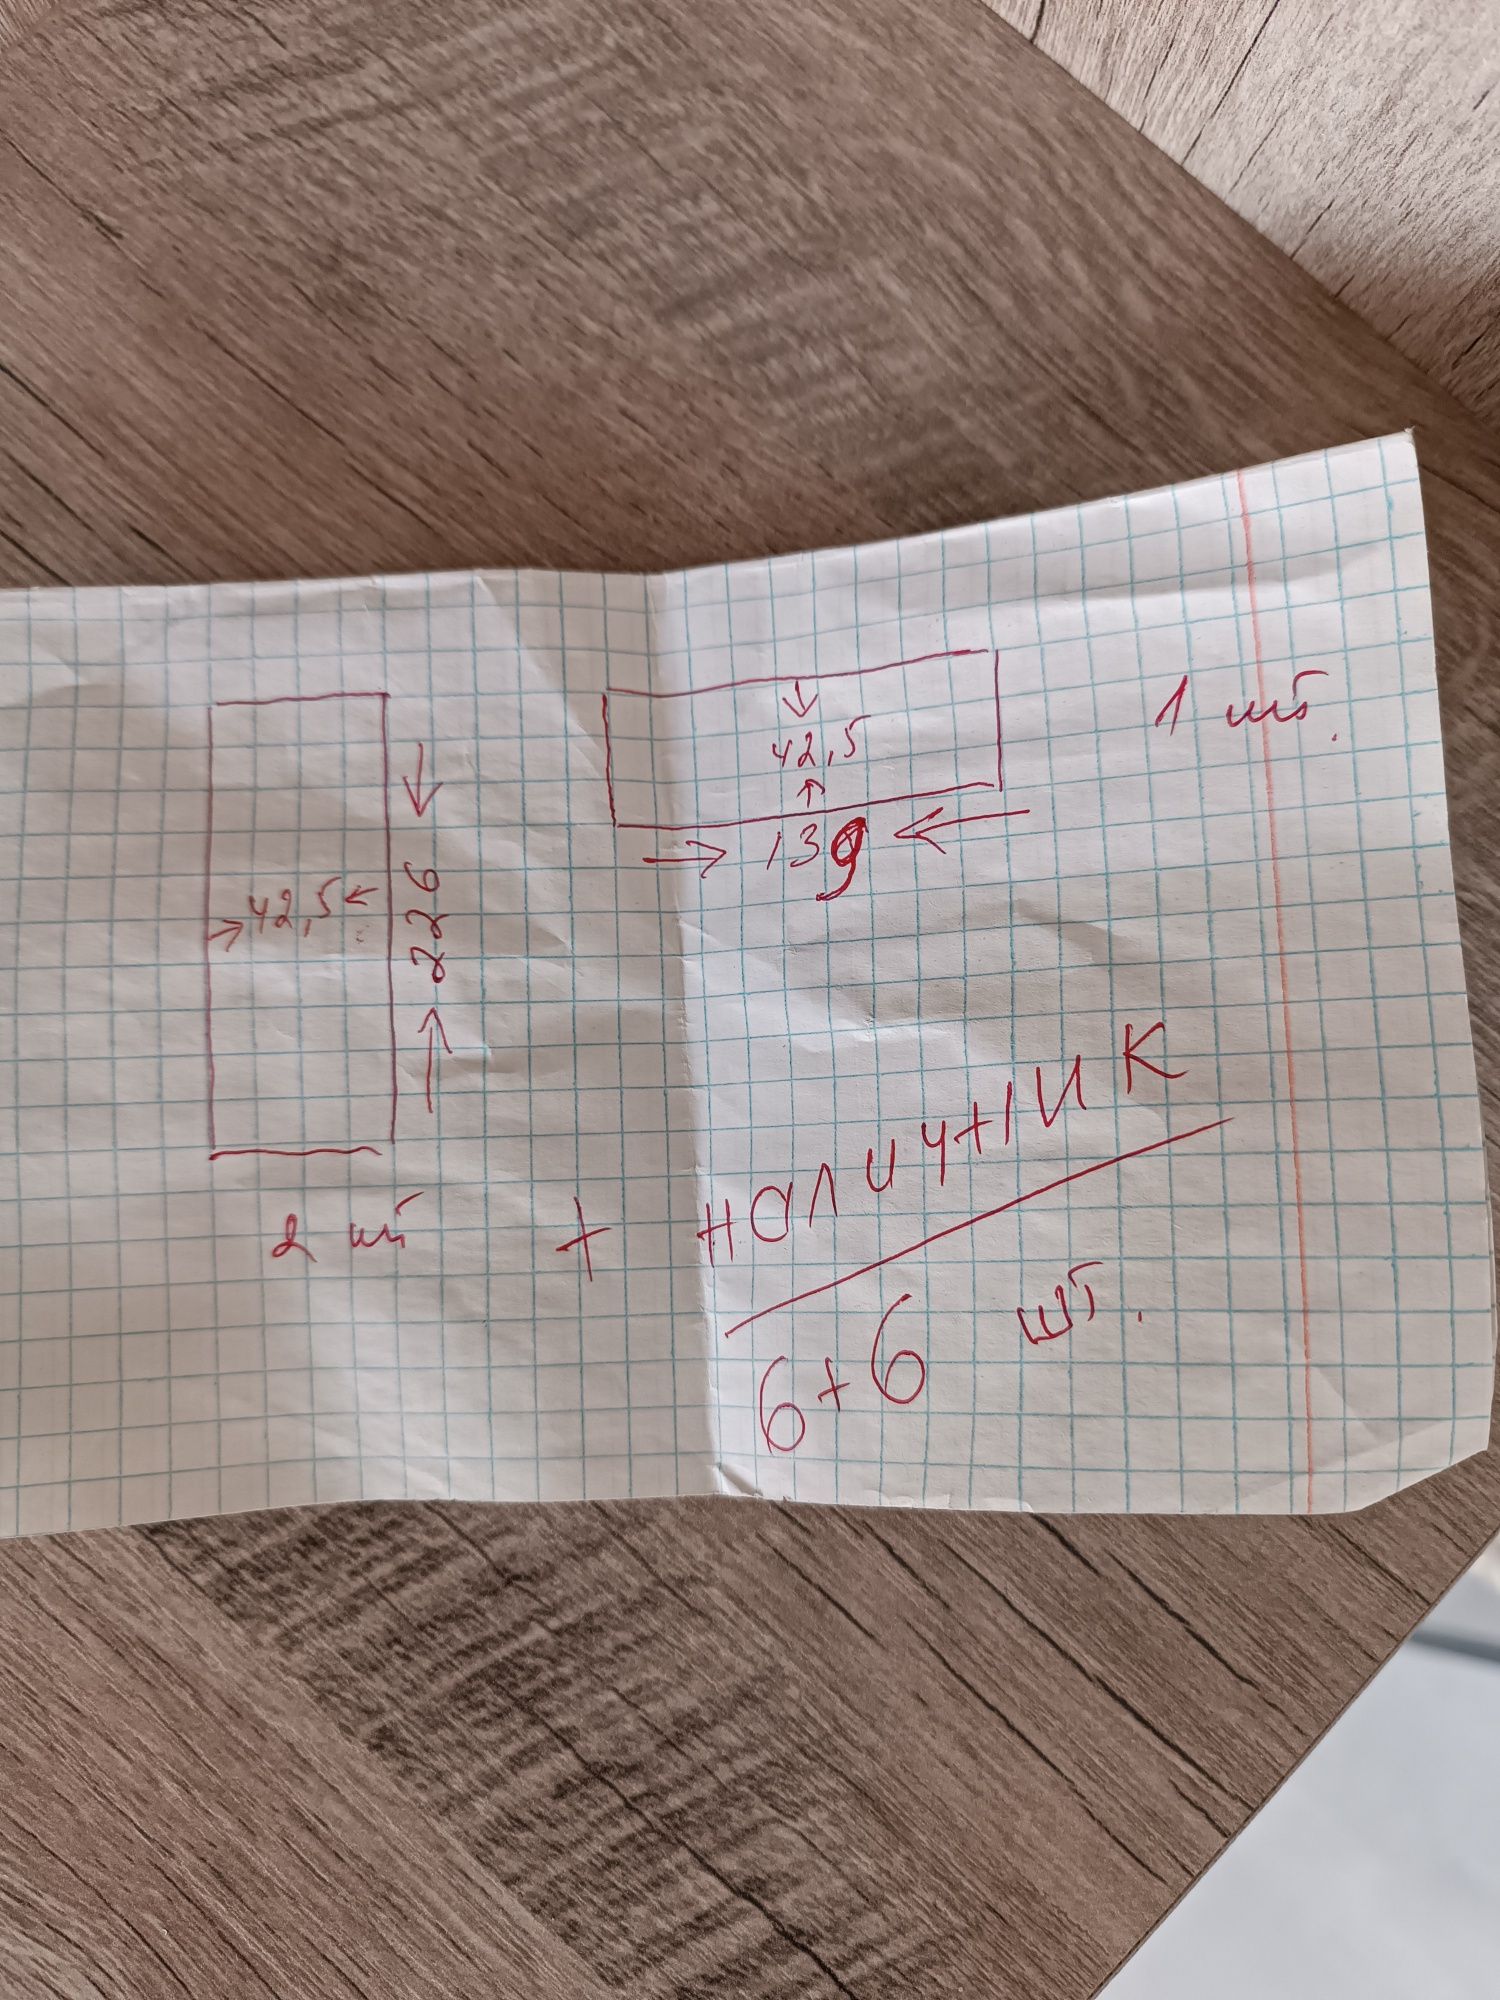 1 шт.
42,5
139
42,5
226
2 шт + наличник
6+6 шт.